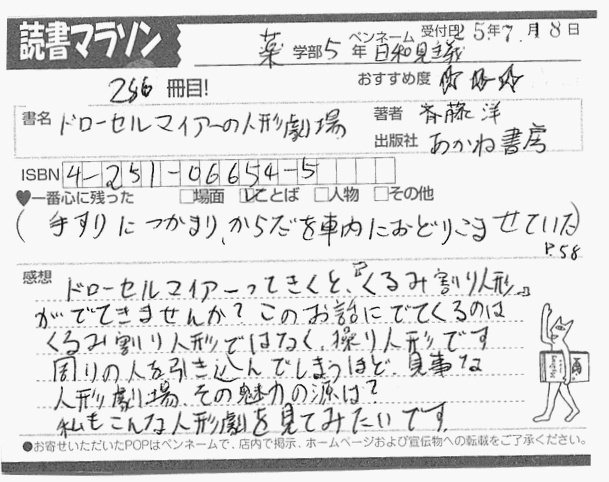 読書マラソン
薬 学部 5 年 ペンネーム 日和見主義 受付印 25年7月18日
おすすめ度 ☆☆☆
266 冊目!
書名 ドローセルマイアーの人形劇場
著者 斉藤 洋
出版社 あかね書房
ISBN 4-251-06654-5
♥一番心に残った □場面 ☑ことば □人物 □その他
(手すりにつかまり、からだを車内におどりこませていた)
P.58
感想
ドローセルマイアーってきくと、『くるみ割り人形』
がでてきませんか?このお話にでてくるのは
くるみ割り人形ではなく、操り人形です
周りの人を引き込んでしまうほど、見事な
人形劇場、その魅力の源は?
私もこんな人形劇を見てみたいです。
●お寄せいただいたPOPはペンネームで、店内で掲示、ホームページおよび宣伝物への転載をご了承ください。